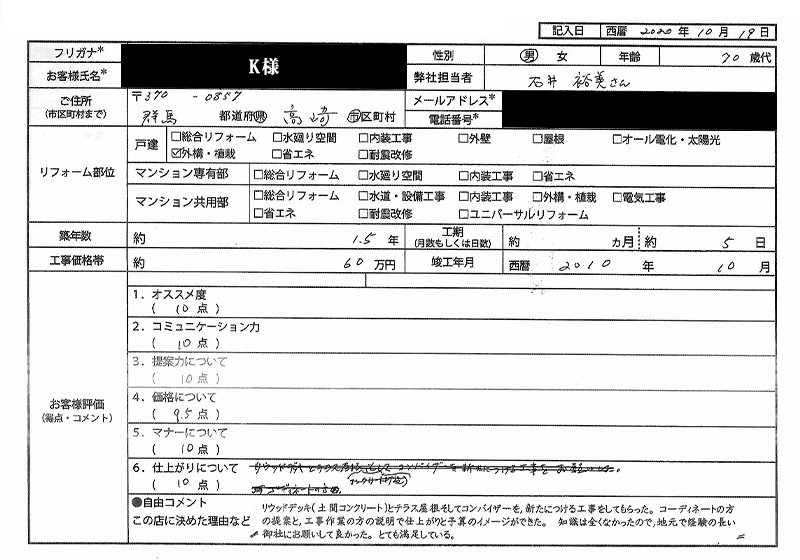 記入日 西暦 2020 年 10 月 19 日
フリガナ* K様 性別 男 女 年齢 70 歳代
お客様氏名* 弊社担当者 石井 裕美さん
ご住所 (市区町村まで) 〒370 - 0857 メールアドレス*
群馬 都道府県 高崎 市区町村 電話番号*
リフォーム部位
戸建 □総合リフォーム □水廻り空間 □内装工事 □外壁 □屋根 □オール電化・太陽光
☑外構・植栽 □省エネ □耐震改修
マンション専有部 □総合リフォーム □水廻り空間 □内装工事 □省エネ
マンション共用部 □総合リフォーム □水道・設備工事 □内装工事 □外構・植栽 □電気工事
□省エネ □耐震改修 □ユニバーサルリフォーム
築年数 約 1.5 年 工期 (月数もしくは日数) 約 カ月 約 5 日
工事価格帯 約 60 万円 竣工年月 西暦 2010 年 10 月
お客様評価 (得点・コメント)
1. オススメ度
( 10 点 )
2. コミュニケーション力
( 10 点 )
3. 提案力について
( 10 点 )
4. 価格について
( 9.5 点 )
5. マナーについて
( 10 点 )
6. 仕上がりについて
( 10 点 )
●自由コメント
この店に決めた理由など
リウッドデッキ(土間コンクリート)とテラス屋根そしてコンバイザーを、新たにつける工事をしてもらった。コーディネートの方
の提案と、工事作業の方の説明で仕上がりと予算のイメージができた。 知識は全くなかったので、地元で経験の長い
御社にお願いして良かった。とても満足している。